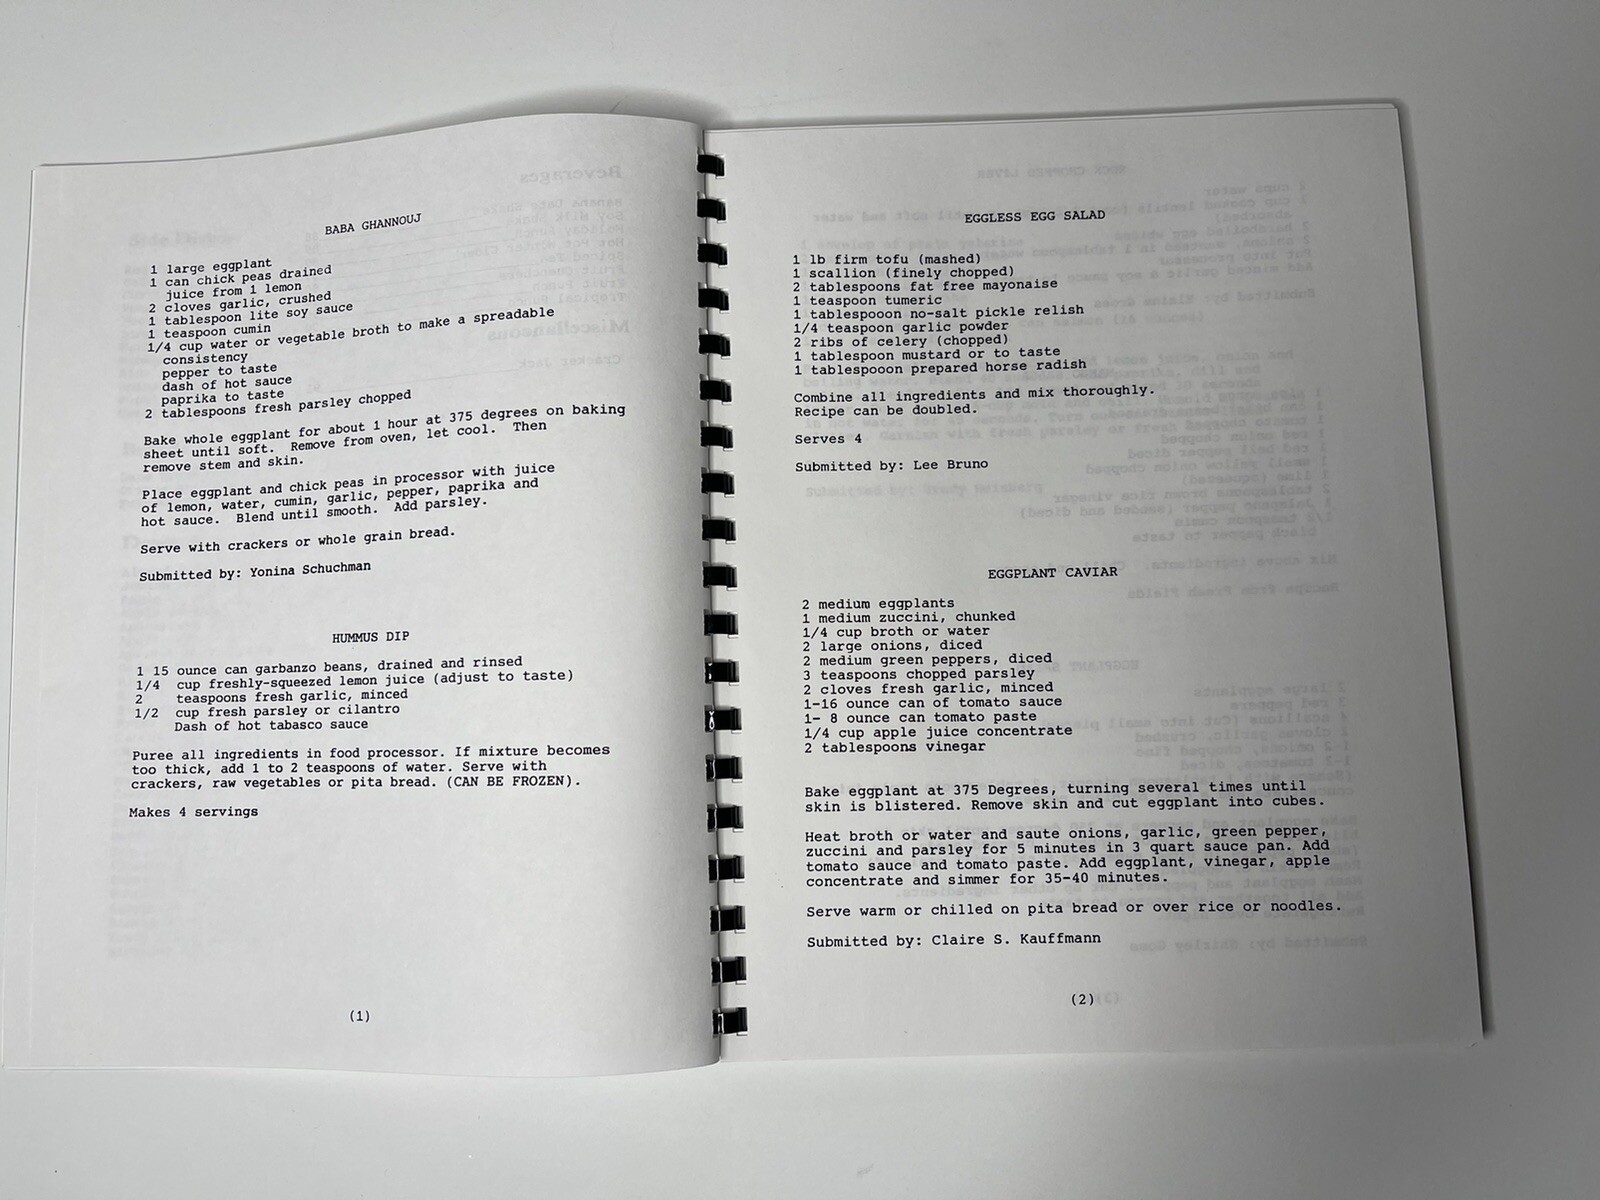 BABA GHANNOUJ
1 large eggplant
1 can chick peas drained
juice from 1 lemon
2 cloves garlic, crushed
1 tablespoon lite soy sauce
1 teaspoon cumin
1/4 cup water or vegetable broth to make a spreadable
consistency
pepper to taste
dash of hot sauce
paprika to taste
2 tablespoons fresh parsley chopped
Bake whole eggplant for about 1 hour at 375 degrees on baking
sheet until soft. Remove from oven, let cool. Then
remove stem and skin.
Place eggplant and chick peas in processor with juice
of lemon, water, cumin, garlic, pepper, paprika and
hot sauce. Blend until smooth. Add parsley.
Serve with crackers or whole grain bread.
Submitted by: Yonina Schuchman
HUMMUS DIP
1 15 ounce can garbanzo beans, drained and rinsed
1/4 cup freshly-squeezed lemon juice (adjust to taste)
2 teaspoons fresh garlic, minced
1/2 cup fresh parsley or cilantro
Dash of hot tabasco sauce
Puree all ingredients in food processor. If mixture becomes
too thick, add 1 to 2 teaspoons of water. Serve with
crackers, raw vegetables or pita bread. (CAN BE FROZEN).
Makes 4 servings
(1)
EGGLESS EGG SALAD
1 lb firm tofu (mashed)
1 scallion (finely chopped)
2 tablespoons fat free mayonaise
1 teaspoon tumeric
1 tablespooon no-salt pickle relish
1/4 teaspoon garlic powder
2 ribs of celery (chopped)
1 tablespoon mustard or to taste
1 tablespooon prepared horse radish
Combine all ingredients and mix thoroughly.
Recipe can be doubled.
Serves 4
Submitted by: Lee Bruno
EGGPLANT CAVIAR
2 medium eggplants
1 medium zuccini, chunked
1/4 cup broth or water
2 large onions, diced
2 medium green peppers, diced
3 teaspoons chopped parsley
2 cloves fresh garlic, minced
1-16 ounce can of tomato sauce
1- 8 ounce can tomato paste
1/4 cup apple juice concentrate
2 tablespoons vinegar
Bake eggplant at 375 Degrees, turning several times until
skin is blistered. Remove skin and cut eggplant into cubes.
Heat broth or water and saute onions, garlic, green pepper,
zuccini and parsley for 5 minutes in 3 quart sauce pan. Add
tomato sauce and tomato paste. Add eggplant, vinegar, apple
concentrate and simmer for 35-40 minutes.
Serve warm or chilled on pita bread or over rice or noodles.
Submitted by: Claire S. Kauffmann
(2)